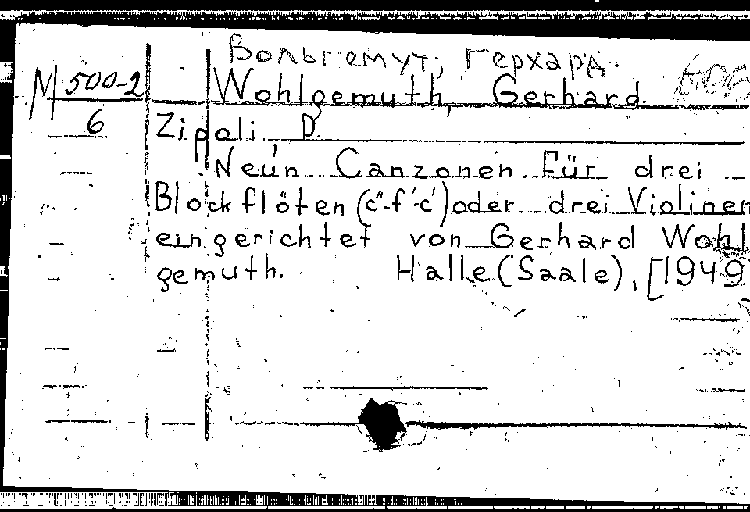 Вольгемут, Герхард.
М 500-2
6
Wohlgemuth, Gerhard
Zipoli, D.
Neun Canzonen für drei
Blockflöten (c"-f'-c') oder drei Violinen
eingerichtet von Gerhard Wohl
gemuth. Halle (Saale), [1949